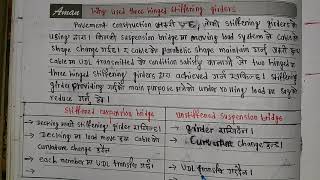 Aman
Why used three hinged stiffening girders
Movement construction गर्दा हुन्छ, त्यसैले stiffening girders को
suspension bridge मा moving load system ले cable को
shape change गर्दछ। र cable को parabolic shape maintain गर्न
cable मा UDL transmitted हुने condition satisfy गर्नको लागि two hinged र
three hinged stiffening girders द्वारा achieved गर्न सकिन्छ। stiffening
girder provide गर्नुको main purpose भनेको under rolling load मा
reduce गर्नु हो।
stiffened suspension bridge
unstiffened suspension bridge
- Decking stiffening girder राखिन्छ।
- girder राखिदैन।
- Decking मा load move हुदा cable को
curvature change हुदैन
- curvature change हुन्छ।
- each member मा UDL transfer गर्दछ।
- UDL transfer गर्दैन।